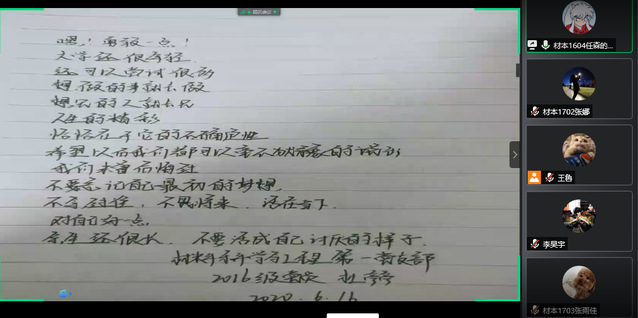 嗯！勇敢一点！
大学还很年轻
还可以尝试很多
想做的事就去做
想见的人就去见
人生的精彩
恰恰在于它的不确定性
希望以后我们都可以毫不犹豫的
我们未曾后悔过
不要忘记自己最初的梦想，
不念过往，不畏将来，活在当下.
对自己好一点。
余生还很长，不要活成自己讨厌的样子.
材料科学与工程 第一党支部
2016级
2020.6.16
材本1604任森的...
材本1702张娜
王鲁
李昊宇
材本1703张雨佳